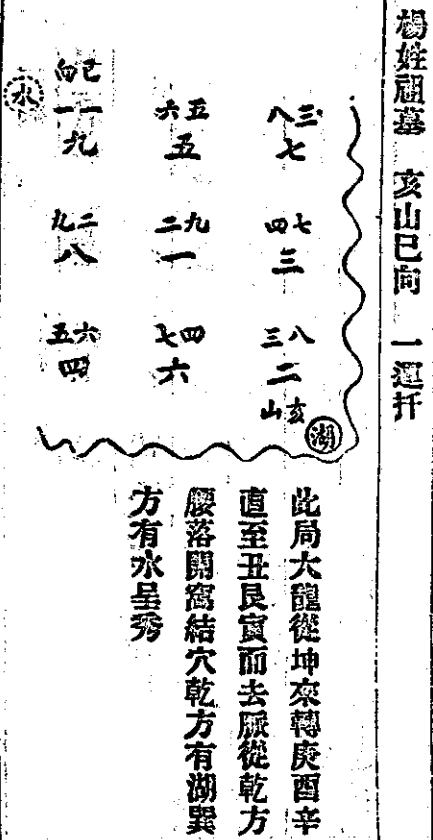 楊姓祖墓　亥山巳向　一運扦
巳向
水
一一　六五　八三
九　五　七
九二　二九　四七
八　一　三
五六　七四　三八
四　六　二
亥山
湖
此局大龍從坤來轉庚酉辛
直至丑艮寅而去脈從乾方
腰落開窩結穴乾方有湖巽
方有水呈秀